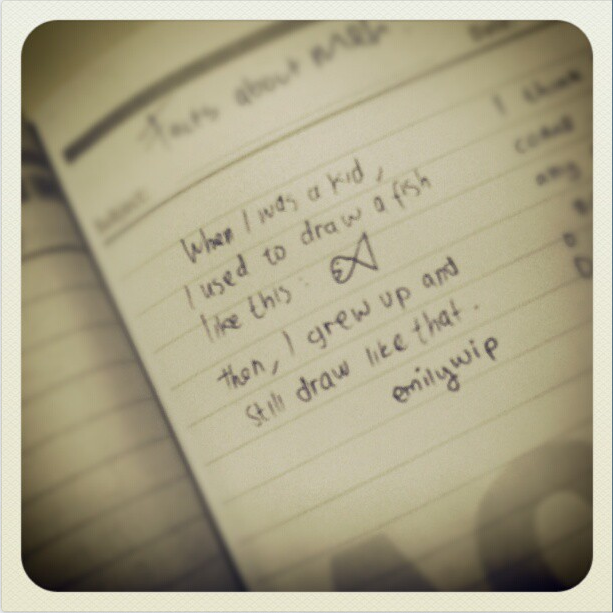 Facts about Me
When I was a kid,
I used to draw a fish
like this :
then, I grew up and
still draw like that.
emilywip
I think